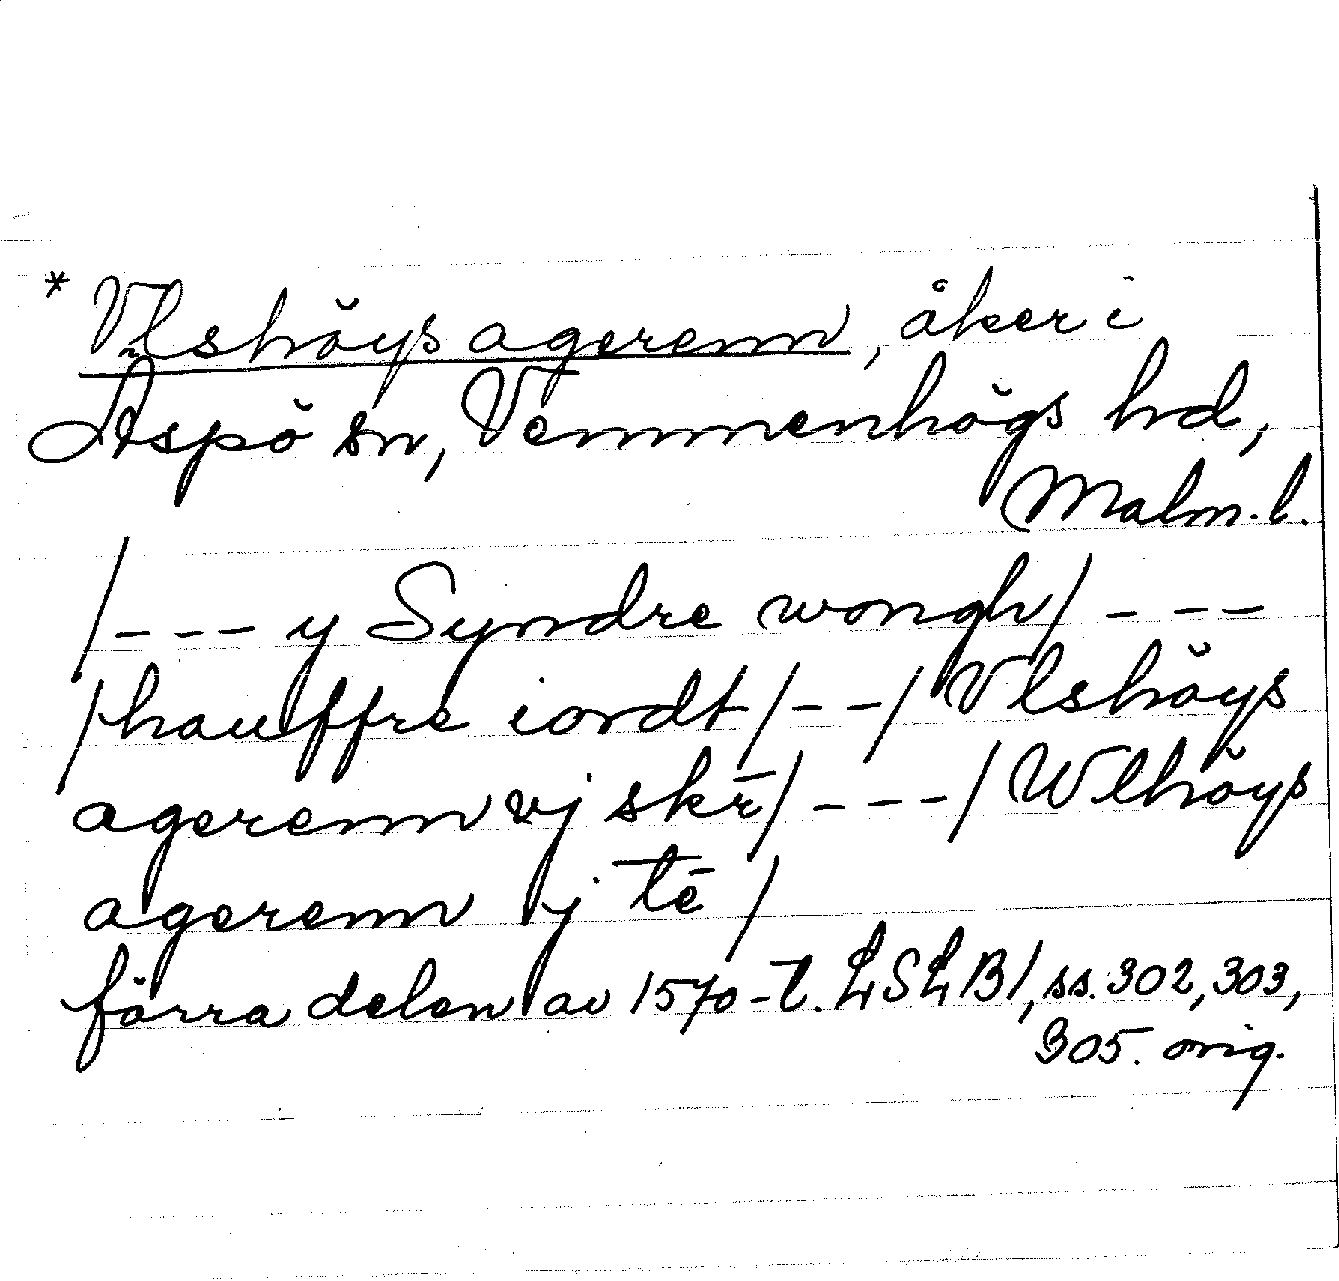 * Vlshöys agerenn, åker i
Aspö sn, Vemmenhögs hd,
Malm. l.
/--- y Syndre wongh/ ---
/hauffre iordt/--/Vlshöys
agerenn vj skr̄/---/Wlhöys
agerenn vj tē /
förra delen av 1570-t. LSLB/, ss. 302, 303,
305. orig.